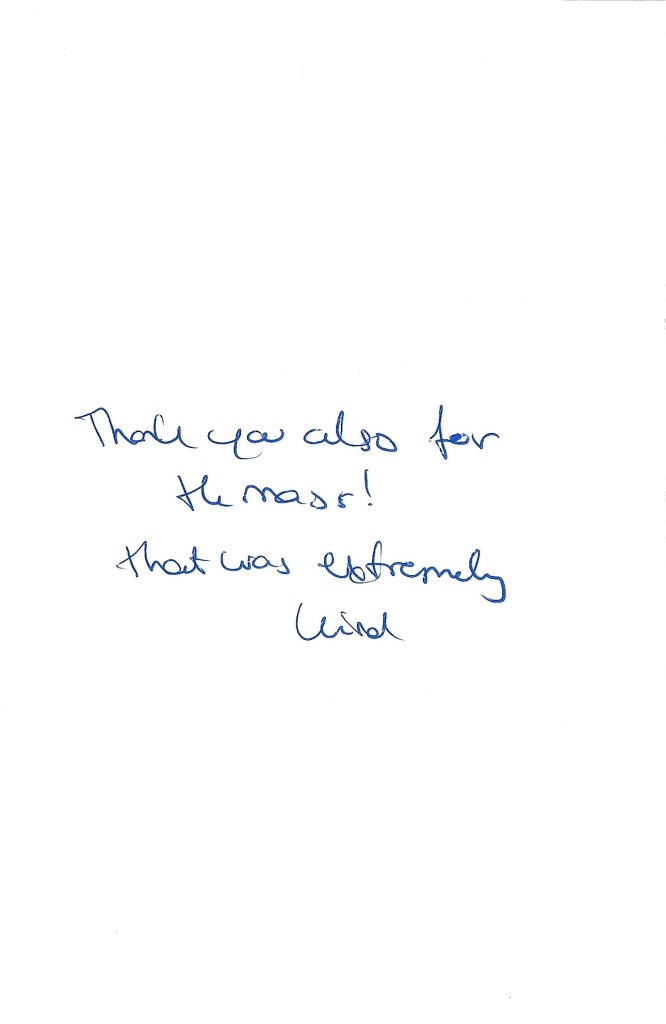 Thank you also for
the mass!
that was extremely
kind